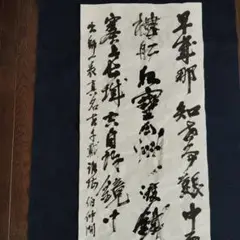 早歲那知世事艱中
樓船夜雪瓜洲渡鐵
塞上長城空自許鏡中
出師一表真名世千載誰堪伯仲間